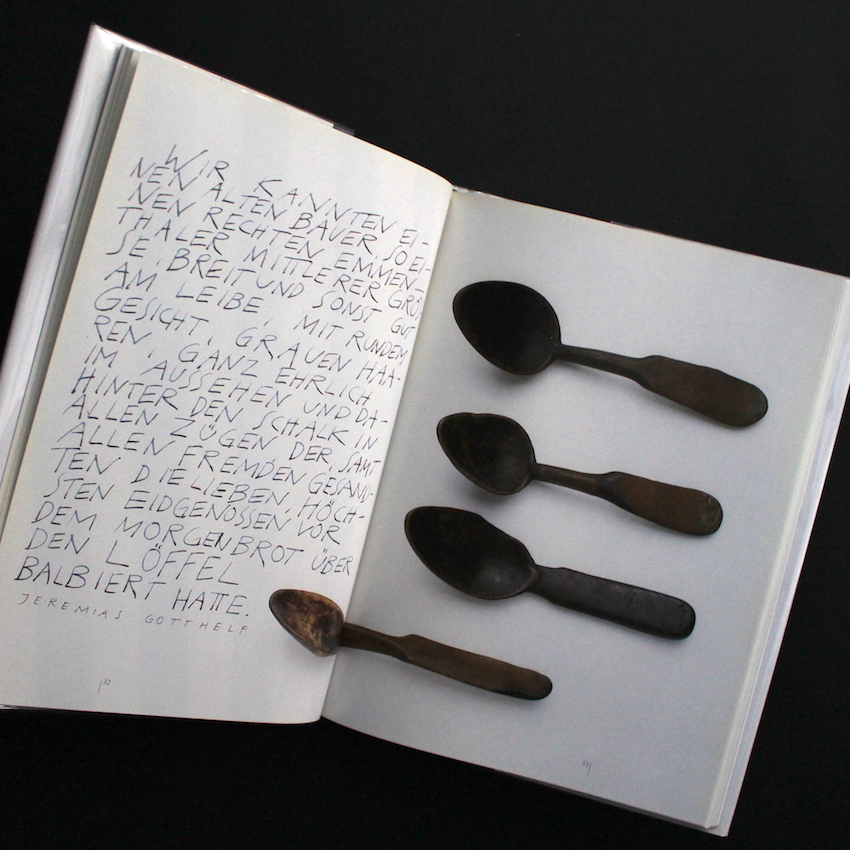 WIR KANNTEN EI-
NEN ALTEN BAUER, SO EI-
NEN RECHTEN EMMEN-
THALER MITTLERER GRÖS-
SE, BREIT UND SONST GUT
AM LEIBE, MIT RUNDEM
GESICHT, GRAUEN HAA-
REN, GANZ EHRLICH
IM AUSSEHEN UND DA-
HINTER DEN SCHALK IN
ALLEN ZÜGEN, DER SAMT
ALLEN FREMDEN GESAND-
TEN DIE LIEBEN, HÖCH-
STEN EIDGENOSSEN, VOR
DEM MORGENBROT ÜBER
DEN LÖFFEL
BALBIERT HATTE.
JEREMIAS GOTTHELF